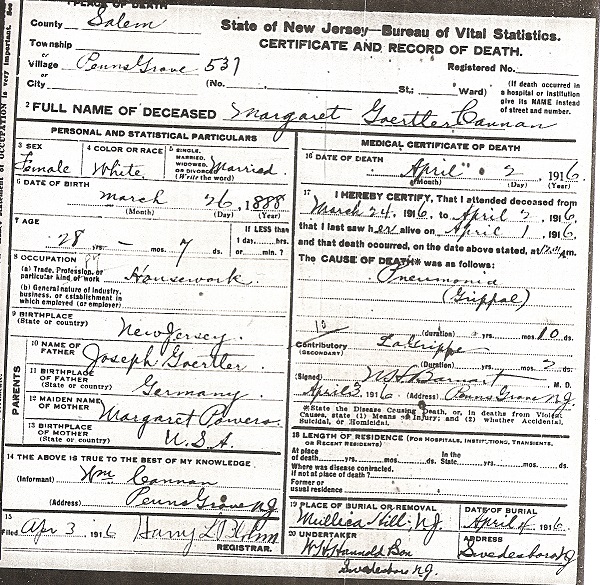 1 PLACE OF DEATH
County Salem
State of New Jersey—Bureau of Vital Statistics.
CERTIFICATE AND RECORD OF DEATH.
Township
or
Village Penns Grove 537
Registered No.
or
City (No. St.; Ward)
(If death occurred in a hospital or institution give its NAME instead of street and number.
2 FULL NAME OF DECEASED Margaret Goertler Cannan
PERSONAL AND STATISTICAL PARTICULARS
3 SEX Female
4 COLOR OR RACE White
5 SINGLE, MARRIED, WIDOWED, OR DIVORCED (Write the word) Married
6 DATE OF BIRTH
March 26, 1888
(Month) (Day) (Year)
7 AGE
28 yrs. — mos. 7 ds.
If LESS than 1 day,....hrs. or....min.?
8 OCCUPATION
(a) Trade, Profession, or particular kind of work Housework.
(b) General nature of industry, business, or establishment in which employed (or employer)
9 BIRTHPLACE (State or country) New Jersey.
PARENTS
10 NAME OF FATHER Joseph Goertler.
11 BIRTHPLACE OF FATHER (State or country) Germany
12 MAIDEN NAME OF MOTHER Margaret Powers.
13 BIRTHPLACE OF MOTHER (State or country) U.S.A.
14 THE ABOVE IS TRUE TO THE BEST OF MY KNOWLEDGE
(Informant) Wm Cannan
(Address) Penns Grove N.J.
15
Filed Apr 3 1916 Harry L
REGISTRAR.
MEDICAL CERTIFICATE OF DEATH
16 DATE OF DEATH April 2, 1916
(Month) (Day) (Year)
17 I HEREBY CERTIFY, That I attended deceased from
March 24, 1916, to April 2, 1916,
that I last saw her alive on April 1, 1916
and that death occurred, on the date above stated, at m.
The CAUSE OF DEATH* was as follows:
Pneumonia
(Grippal)
10
(duration) yrs. mos. 10 ds.
Contributory (SECONDARY) La Grippe
(Duration) yrs. mos. ds.
(Signed) M. D.
April 3, 1916 (Address) Penns Grove N.J.
*State the Disease Causing Death, or, in deaths from Violent Causes, state (1) Means of Injury; and (2) whether Accidental, Suicidal, or Homicidal.
18 LENGTH OF RESIDENCE (FOR HOSPITALS, INSTITUTIONS, TRANSIENTS, OR RECENT RESIDENTS)
At place of death yrs. mos. ds.
In the State yrs. mos. ds.
Where was disease contracted, if not at place of death?
Former or usual residence
19 PLACE OF BURIAL OR REMOVAL
Mullica Hill, N.J.
DATE OF BURIAL
April 4, 1916.
20 UNDERTAKER
Son
Swedesboro N.J.
ADDRESS
Swedesboro N.J.